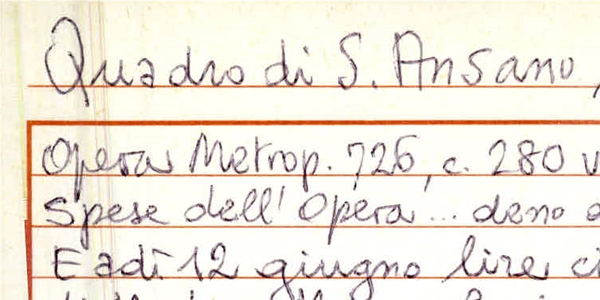 Quadro di S. Ansano,
Opera Metrop. 726, c. 280 v
Spese dell'Opera... deno
E adì 12 giugno lire ci